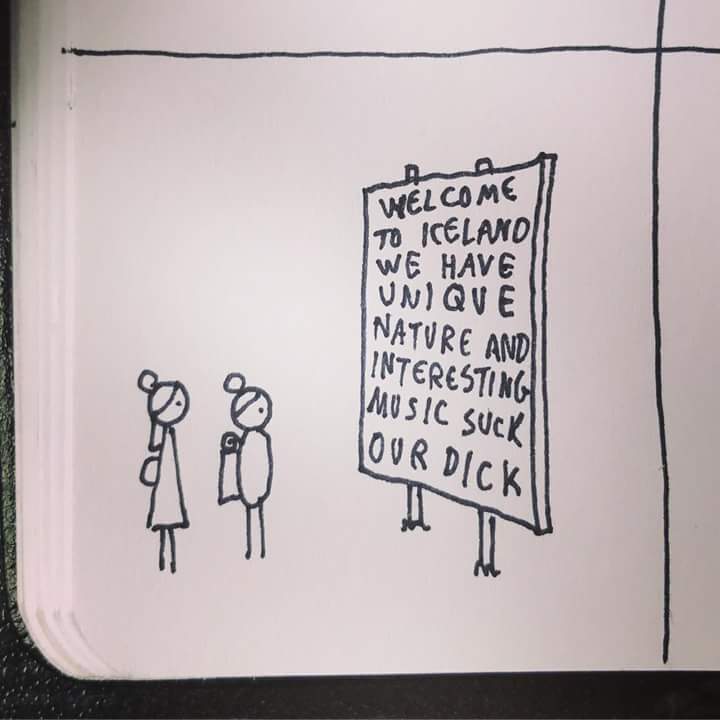 WELCOME
TO ICELAND
WE HAVE
UNIQUE
NATURE AND
INTERESTING
MUSIC SUCK
OUR DICK